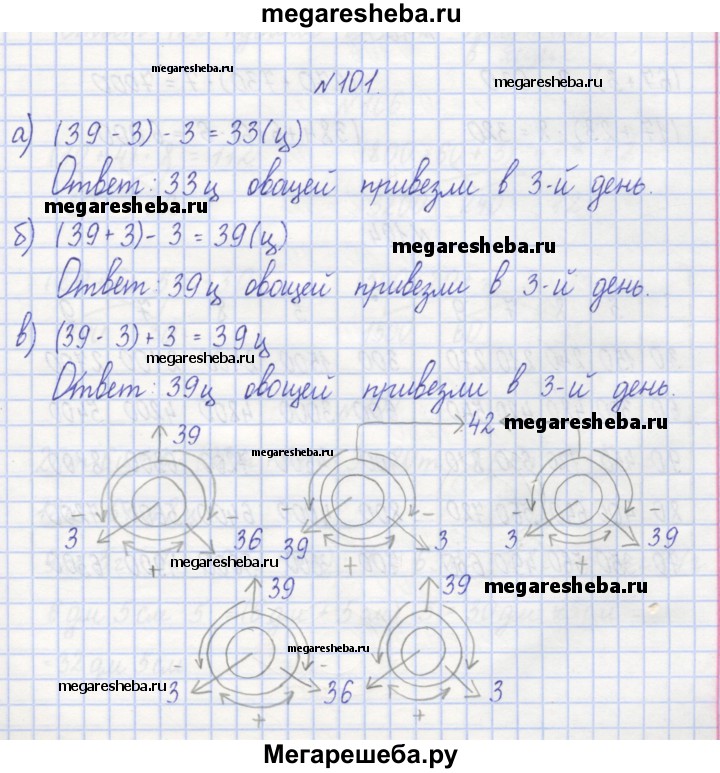 megaresheba.ru
megaresheba.ru
№101.
megaresheba.ru
а) (39 - 3) - 3 = 33(ц)
Ответ: 33ц овощей привезли в 3-й день.
megaresheba.ru
б) (39 + 3) - 3 = 39(ц)
megaresheba.ru
Ответ: 39ц овощей привезли в 3-й день.
в) (39 - 3) + 3 = 39ц
megaresheba.ru
Ответ: 39ц овощей привезли в 3-й день.
39 42 megaresheba.ru
megaresheba.ru
- - - - - -
3 36 39 3 3 39
+ + +
megaresheba.ru
39 39 megaresheba.ru
megaresheba.ru
- -
megaresheba.ru 3 36 3
+ +
Мегарешеба.ру